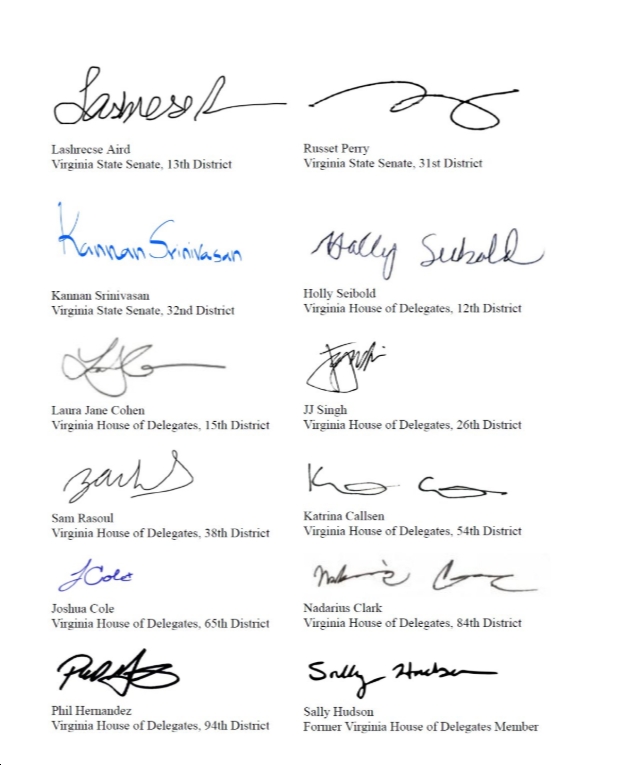 Lashrecse Aird
Virginia State Senate, 13th District
Russet Perry
Virginia State Senate, 31st District
Kannan Srinivasan
Kannan Srinivasan
Virginia State Senate, 32nd District
Holly Seibold
Holly Seibold
Virginia House of Delegates, 12th District
Laura Jane Cohen
Virginia House of Delegates, 15th District
JJ Singh
Virginia House of Delegates, 26th District
Sam Rasoul
Virginia House of Delegates, 38th District
Katrina Callsen
Virginia House of Delegates, 54th District
J Cole
Joshua Cole
Virginia House of Delegates, 65th District
Nadarius Clark
Virginia House of Delegates, 84th District
Phil Hernandez
Virginia House of Delegates, 94th District
Sally Hudson
Sally Hudson
Former Virginia House of Delegates Member